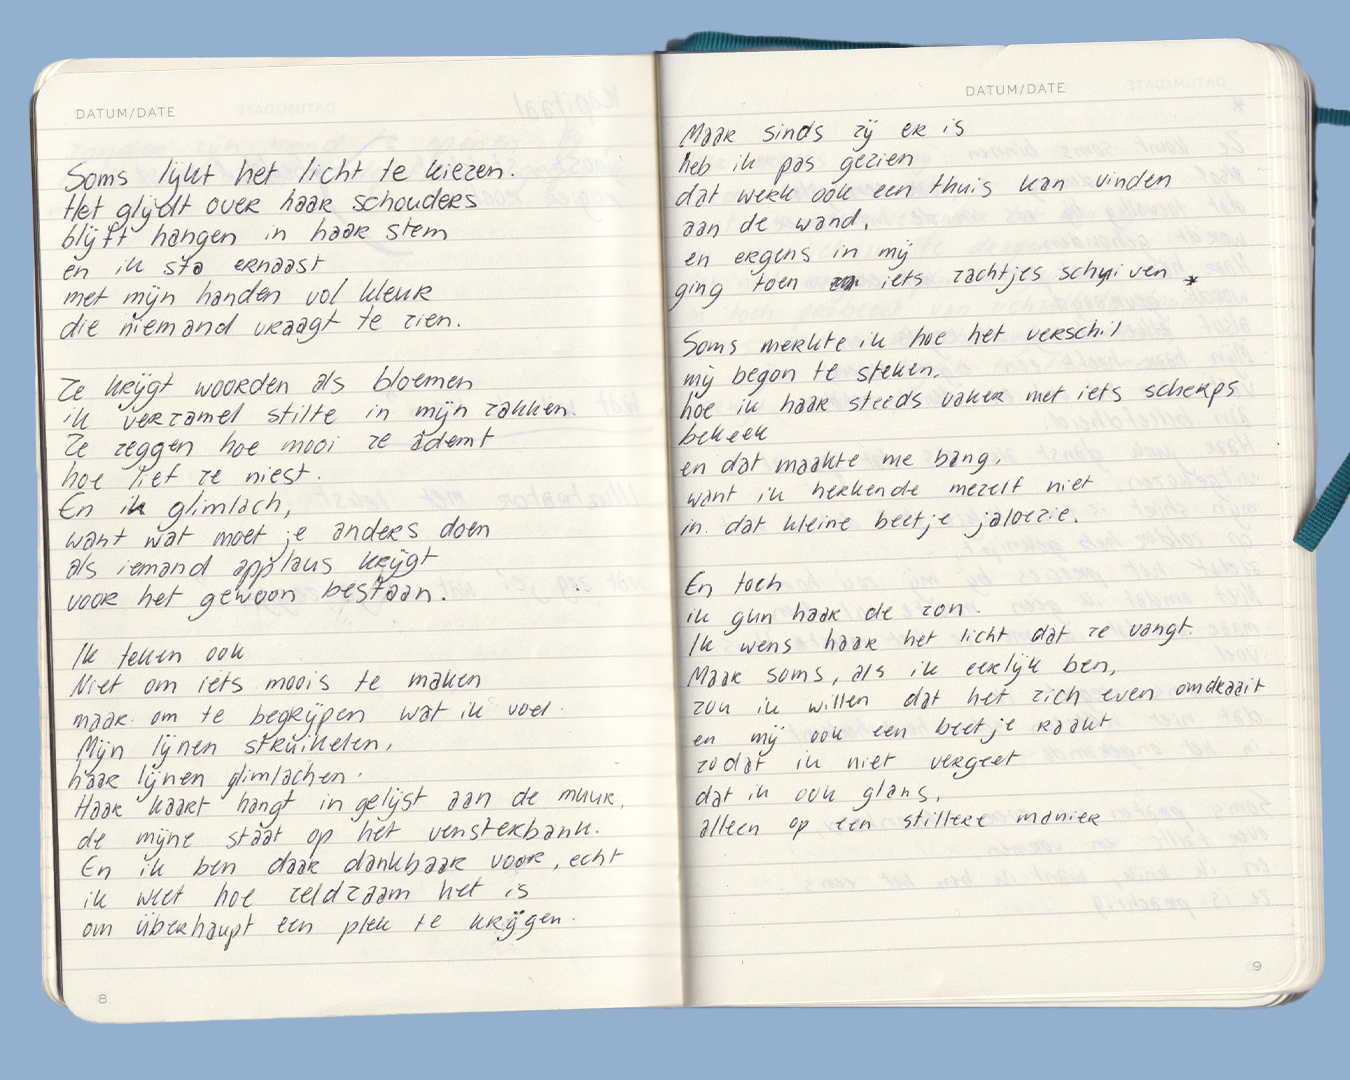 DATUM/DATE
Soms lijkt het licht te kiezen.
Het glijdt over haar schouders
blijft hangen in haar stem
en ik sta ernaast
met mijn handen vol kleur
die niemand vraagt te zien.
Ze krijgt woorden als bloemen
ik verzamel stilte in mijn zakken.
Ze zeggen hoe mooi ze ademt
hoe lief ze niest.
En ik glimlach,
want wat moet je anders doen
als iemand applaus krijgt
voor het gewoon bestaan.
Ik teken ook
Niet om iets moois te maken
maar om te begrijpen wat ik voel.
Mijn lijnen struikelen,
haar lijnen glimlachen.
Haar kaart hangt ingelijst aan de muur,
de mijne staat op het vensterbank.
En ik ben daar dankbaar voor, echt
ik weet hoe zeldzaam het is
om überhaupt een plek te krijgen.
8
DATUM/DATE
Maar sinds zij er is
heb ik pas gezien
dat werk ook een thuis kan vinden
aan de wand,
en ergens in mij
ging toen iets zachtjes schuiven *
Soms merkte ik hoe het verschil
mij begon te steken,
hoe ik haar steeds vaker met iets scherps
bekeek
en dat maakte me bang,
want ik herkende mezelf niet
in dat kleine beetje jaloezie.
En toch
ik gun haar de zon.
Ik wens haar het licht dat ze vangt.
Maar soms, als ik eerlijk ben,
zou ik willen dat het zich even omdraait
en mij ook een beetje raakt
zodat ik niet vergeet
dat ik ook glans,
alleen op een stillere manier
9